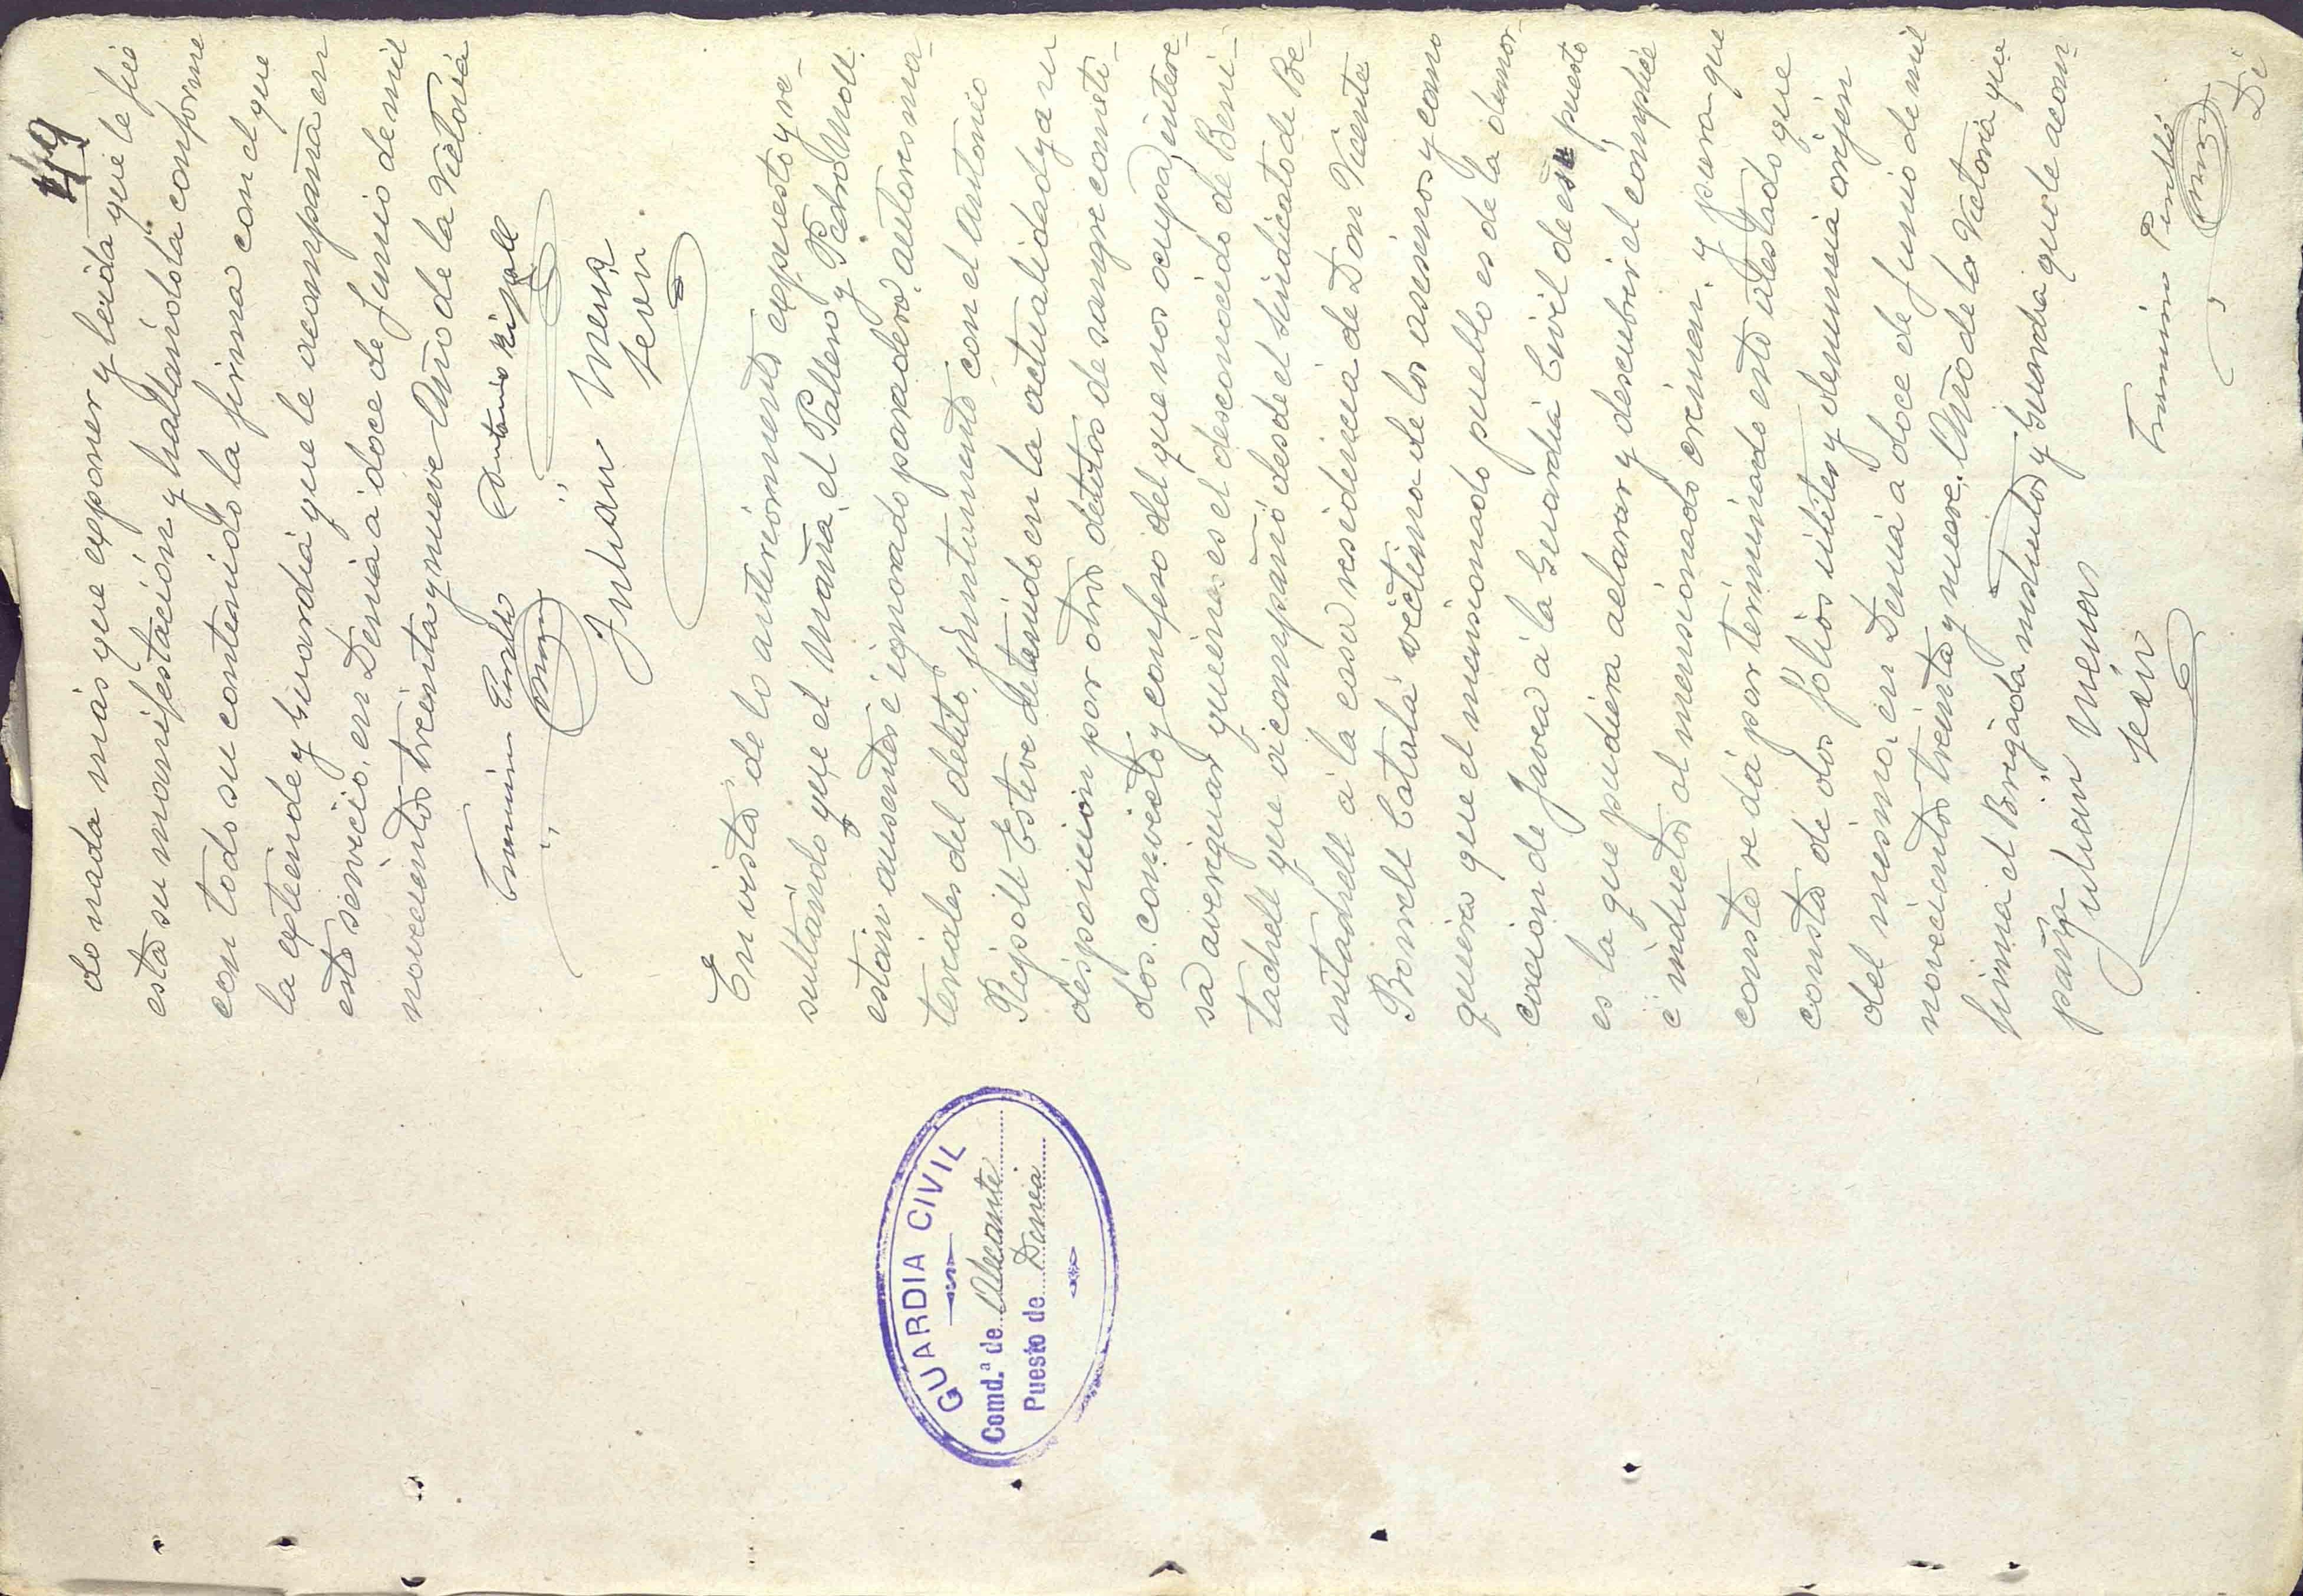 49
do nada más que exponer y leida que le fué
esta su manifestación y hallandola conforme
con todo su contenido la firma con el que
la extiende y Guardia que le acompaña en
este servicio, en Denia á doce de Junio de mil
novecientos treinta y nueve Año de la Victoria
Antonio Ripoll
Julián Mena
En vista de lo anteriormente expuesto y re-
sultando que el Maña, el Pallero y Pedro Moll
estan ausentes é ignorado paradero, autores ma-
teriales del delito, juntamente con el Antonio
Ripoll Esteve detenido en la actualidad y a su
disposicion por otros delitos de sangre cometi-
dos, convicto y confeso del que nos ocupa, intere-
sa averiguar quienes es el desconocido de Beni-
tachell que acompañó desde el Sindicato de Be-
nitachell a la casa residencia de Don Vicente
Borrell Catalá victima de los asesinos y como
quiera que el mensionado pueblo es de la demar-
cacion de Javea á la Guardia Civil de este puesto
es la que pudiera aclarar y descubrir el complice
é inductor al mensionado crimen, y para que
conste se dá por terminado este atestado que
consta de dos fólios utiles y denuncia orijen
del mismo, en Denia á doce de Junio de mil
novecientos treinta y nueve. Año de la Victoria que
firma el Brigada instructor y Guardia que le acom-
paña
Julián Mena
GUARDIA CIVIL
Comd.ª de Alicante
Puesto de Denia
Di